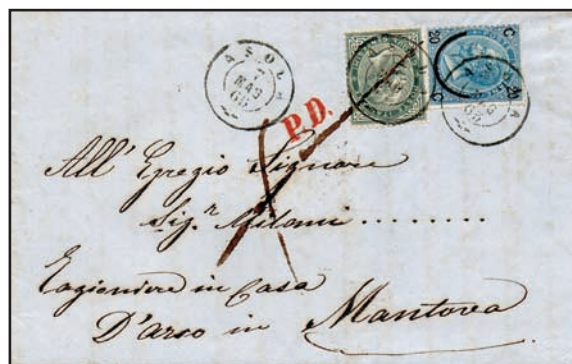 ASOLA
7
MAG
66
C 20
20 C
ASOLA
ASOLA
P.D.
All' Egregio Signore
Sig.r Milani ........
Ragioniere in Casa
D'Arco in Mantova